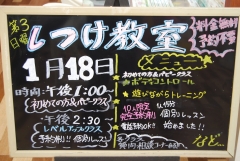 第3日曜
しつけ教室
料金無料
予約不要
1月18日
時間:午後1:00〜
初めての方&パピークラス
午後2:30〜
レベルアップクラス
個別レッスン
メニュー
初めての方&パピークラス
★ボディコントロール
★遊びながらトレーニング
10人限定
完全予約制
個別レッスン
始めました!!
など…